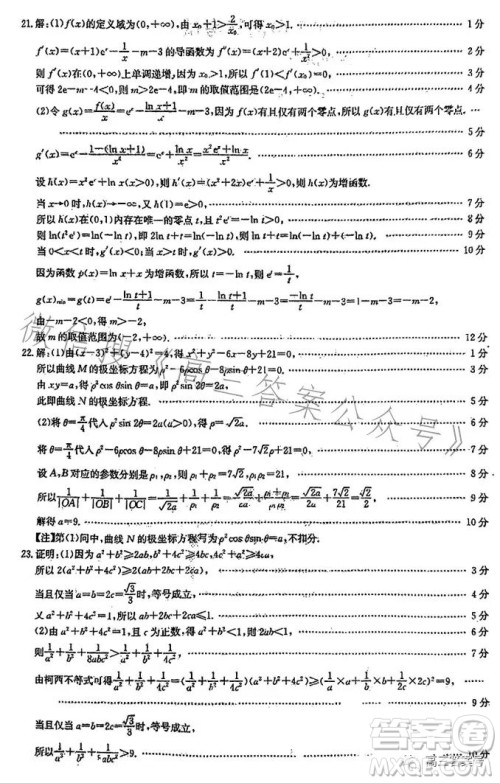 21.解:(1)f(x)的定义域为(0,+∞),由x₀+1>2/x₀,可得x₀>1. 1分
f′(x)=(x+1)eˣ-1/x-m-3的导函数为f″(x)=(x+2)eˣ+1/x²>0, 2分
则f′(x)在(0,+∞)上单调递增,因为x₀>1,所以f′(1)<f′(x₀)=0, 3分
可得2e-m-4<0,所以m>2e-4,即m的取值范围是(2e-4,+∞). 4分
(2)令g(x)=f(x)/x=eˣ-(lnx+1)/x-m-3,因为f(x)有且仅有两个零点,所以g(x)有且仅有两个零点.
5分
g′(x)=eˣ-(1-(lnx+1))/x²=eˣ+lnx/x²=(x²eˣ+lnx)/x². 6分
设h(x)=x²eˣ+lnx,则h′(x)=(x²+2x)eˣ+1/x>0,所以h(x)为增函数.
当x→0时,h(x)→-∞,又h(1)=e>0, 7分
所以h(x)在(0,1)内存在唯一的零点t,且t²eᵗ=-lnt>0, 8分
则ln(t²eᵗ)=ln(-lnt),即2lnt+t=ln(-lnt),则lnt+t=ln(-lnt)+(-lnt). 9分
当0<x<t时,g′(x)<0;当x>t时,g′(x)>0. 10分
因为函数p(x)=lnx+x为增函数,所以t=-lnt,则eᵗ=1/t,
g(x)min=g(t)=eᵗ-(lnt+1)/t-m-3=1/t-(lnt+1)/t-m-3=-lnt/t-m-3=1-m-3=-m-2,
由-m-2<0,得m>-2,
故m的取值范围为(-2,+∞). 12分
22.解:(1)由(x-3)²+(y-4)²=4,得x²+y²-6x-8y+21=0, 1分
所以曲线M的极坐标方程为ρ²-6ρcosθ-8ρsinθ+21=0. 3分
由xy=a,得ρ²cosθsinθ=a(a>0), 4分
此即曲线N的极坐标方程. 5分
(2)将θ=π/4代入ρ²sinθcosθ=a(a>0),得ρ=√2a. 6分
将θ=π/4代入ρ²-6ρcosθ-8ρsinθ+21=0,得ρ²-7√2ρ+21=0, 7分
设A,B对应的参数分别是ρ₁,ρ₂,则ρ₁+ρ₂=7√2,ρ₁ρ₂=21, 8分
所以1/|OA|+1/|OB|+1/|OC|=1/√2a+1/ρ₁+1/ρ₂=√2a/2a+(ρ₁+ρ₂)/ρ₁ρ₂=√2a/2a+7√2/21=√2/2, 9分
解得a=9. 10分
【注】第(1)问中,曲线N的极坐标方程写为ρ²cosθsinθ=a,不扣分.
23.证明:(1)因为a²+b²≥2ab,b²+4c²≥4bc,4c²+a²≥4ca,
所以2(a²+b²+4c²)≥2ab+4bc+4ac, 3分
当且仅当a=b=2c=√3/3时,等号成立, 4分
又a²+b²+4c²=1,所以ab+2bc+2ac≤1. 5分
(2)由a²+b²+4c²=1,且c为正数,得a²+b²<1. 6分
则1/a²+1/b²+1/8abc²>1/a²+1/b²+1/4c². 7分
由柯西不等式可得1/a²+1/b²+1/4c²=(a²+b²+4c²)(1/a²+1/b²+1/4c²)≥(1/a×a+1/b×b+1/2c×2c)²=9,
9分
当且仅当a=b=2c=√3/3时,等号成立,
所以1/a²+1/b²+1/8abc²>9. 10分
微信搜《高三答案公众号》